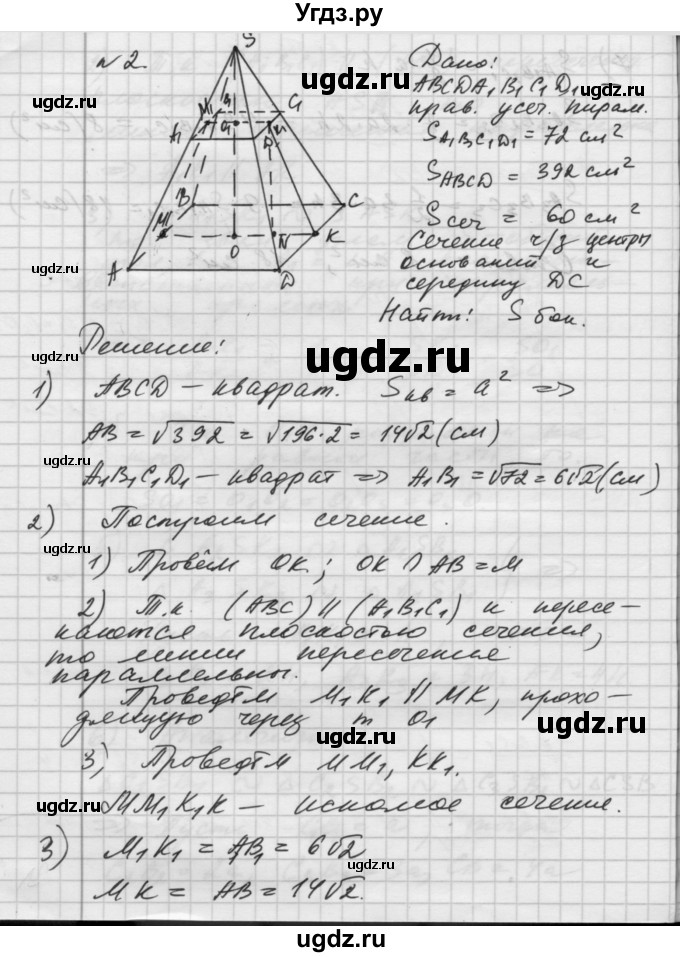 Угдз.ру
№2.
S
M₁ B₁ C₁
A₁ O₁ K₁
D₁
B C
M O N K
A D
Дано:
ABCDA₁B₁C₁D₁ –
прав. усеч. пирам.
S A₁B₁C₁D₁ = 72 см²
S ABCD = 392 см²
S сеч = 60 см²
Сечение ч/з центры
оснований и
середину DC
Найти: S бок.
ugdz.ru
ugdz.ru
Решение:
ugdz.ru
1) ABCD – квадрат. S кв = a² =>
AB = √392 = √196·2 = 14√2 (см)
ugdz.ru ugdz.ru
A₁B₁C₁D₁ – квадрат => A₁B₁ = √72 = 6√2 (см)
2) Построим сечение.
ugdz.ru
1) Провём OK; OK ∩ AB = M
2) Т.к. (ABC) || (A₁B₁C₁) и пересе-
каются плоскостью сечения,
то линии пересечение
параллельны.
ugdz.ru
Проведём M₁K₁ || MK, прохо-
дящую через т O₁
ugdz.ru
3) Проведём MM₁, KK₁.
ugdz.ru
MM₁K₁K – искомое сечение.
3) M₁K₁ = A₁B₁ = 6√2
MK = AB = 14√2.
ugdz.ru
ugdz.ru